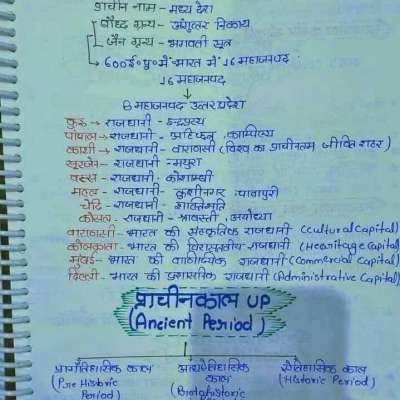 प्राचीन नाम - मध्य देश
बौद्ध ग्रन्थ - अंगुत्तर निकाय
जैन ग्रन्थ - भगवती सूत्र
→ 600 ई० पू० में भारत में 16 महाजनपद
16 महाजनपद
8 महाजनपद उत्तर प्रदेश
कुरु → राजधानी - इन्द्रप्रस्थ
पांचाल → राजधानी - अहिच्छत्र, काम्पिल्य
काशी → राजधानी - वाराणसी (विश्व का प्राचीनतम जीवित शहर)
राजधानी - मथुरा
वत्स - राजधानी - कोशाम्बी
मल्ल - राजधानी - कुशीनगर, पावापुरी
चेदि - राजधानी - शक्तिमति
कोसल - राजधानी - श्रावस्ती, अयोध्या
वाराणसी - भारत की संस्कृतिक राजधानी (Cultural Capital)
कोलकाता - भारत की राजधानी (Heritage Capital)
मुंबई - भारत की वाणिज्यिक राजधानी (Commercial Capital)
दिल्ली - भारत की प्रशासनिक राजधानी (Administrative Capital)
प्राचीनकाल UP
(Ancient Period)
प्रागैतिहासिक काल
(Pre Historic
Period)
आद्यऐतिहासिक
काल
ऐतिहासिक काल
(Historic Period)